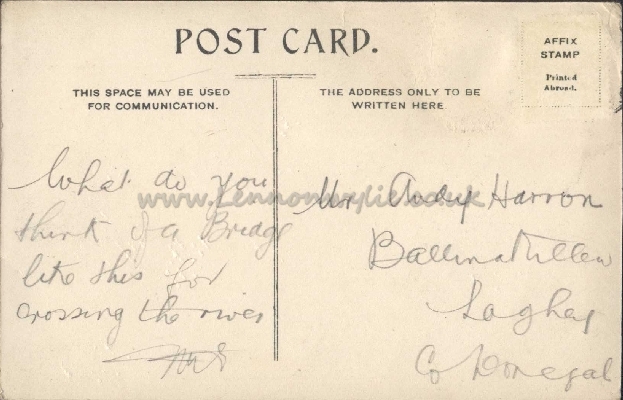 POST CARD.
AFFIX
STAMP
Printed
Abroad.
THIS SPACE MAY BE USED
FOR COMMUNICATION.
THE ADDRESS ONLY TO BE
WRITTEN HERE
What do you
think of a Bridge
like this for
crossing the river
www.Lennonwylie.co.uk
Mr Andy Harron
Laghey
Co Donegal